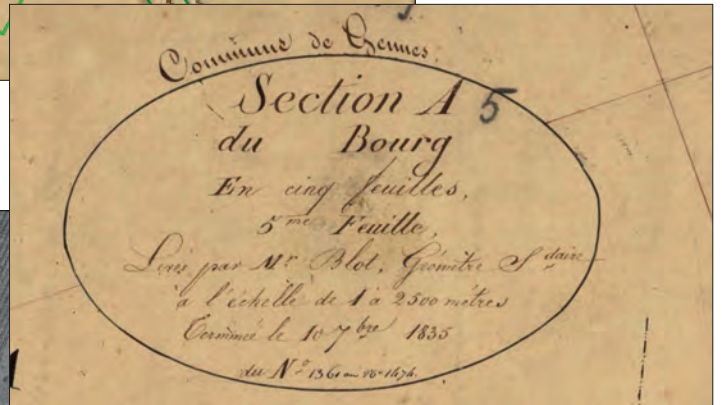 Commune de Gennes.
Section A 5
du Bourg
En cinq feuilles,
5me Feuille,
Levé par Mr Blot, Géomètre Sdaire
à l'échelle de 1 à 2500 mètres
Terminé le 10 7bre 1835
du No 1361 au no 1474.